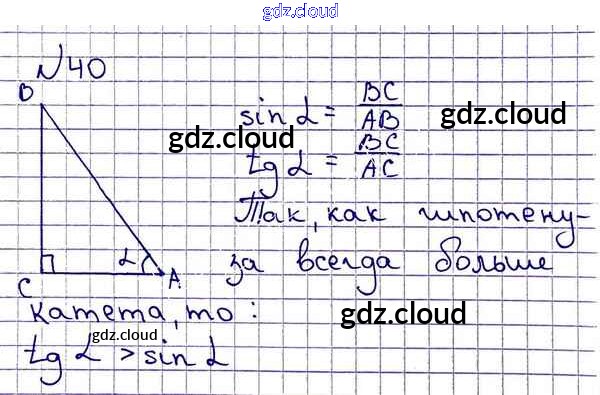 gdz.cloud
№40
B
sin α = BC/AB
gdz.cloud gdz.cloud
tg α = BC/AC
Так, как гипотену-
за всегда больше
α
C A
катета, то:
gdz.cloud
gdz.cloud
tg α > sin α